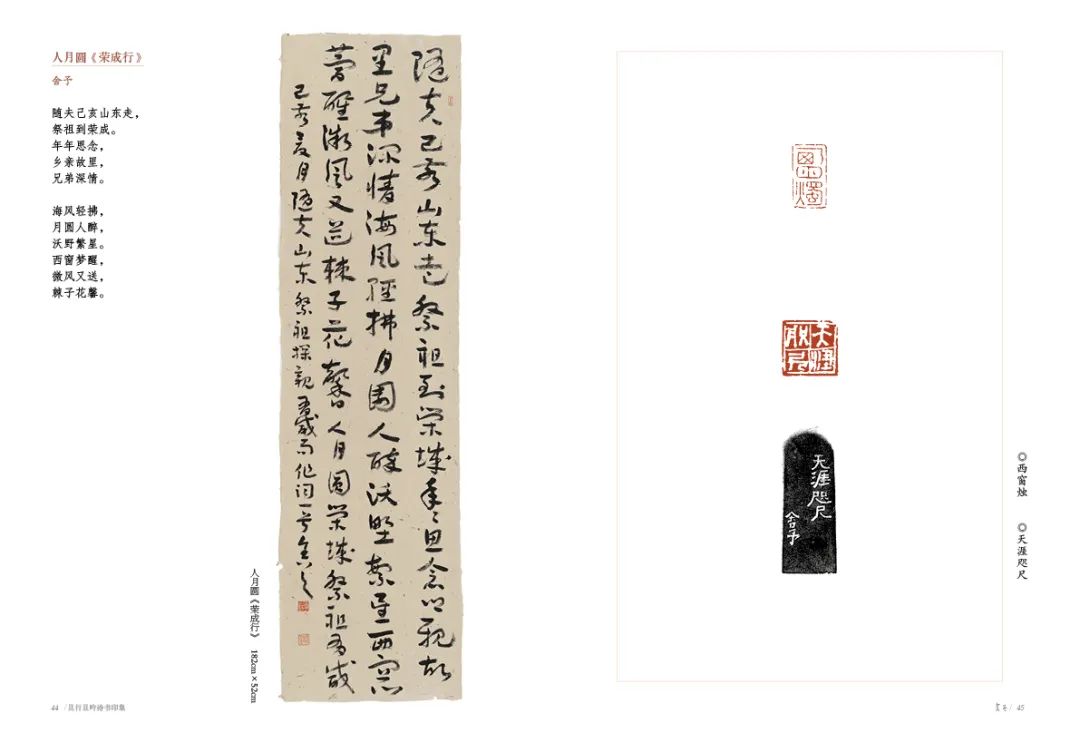 人月圆《荣成行》
舍予
随夫己亥山东走，
祭祖到荣成。
年年思念，
乡亲故里，
兄弟深情。
海风轻拂，
月圆人醉，
沃野繁星。
西窗梦醒，
微风又送，
棘子花馨。
随夫己亥山东走祭祖到荣城年年思念乡亲故
里兄弟深情海风轻拂月圆人醉沃野繁星西窗
梦醒微风又送棘子花馨人月圆荣城祭祖有感
己亥夏月随夫山东祭祖探亲有感而作词一首舍予
人月圆《荣成行》 182cm×52cm
44 /且行且吟诗书印集
西窗烛
天涯咫尺
天涯咫尺
舍予
◎西窗烛 ◎天涯咫尺
/ 45